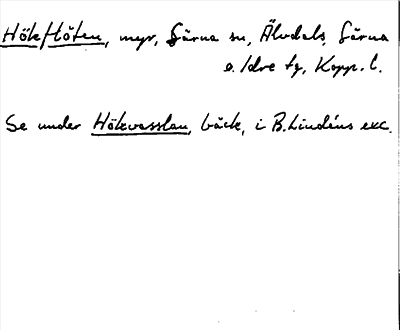 Hök/töten, myr, Särna sn, Älvdals, Särna
o. Idre tg, Kopp. l.
Se under Hökvasslan, bäck, i B. Lindéns exc.